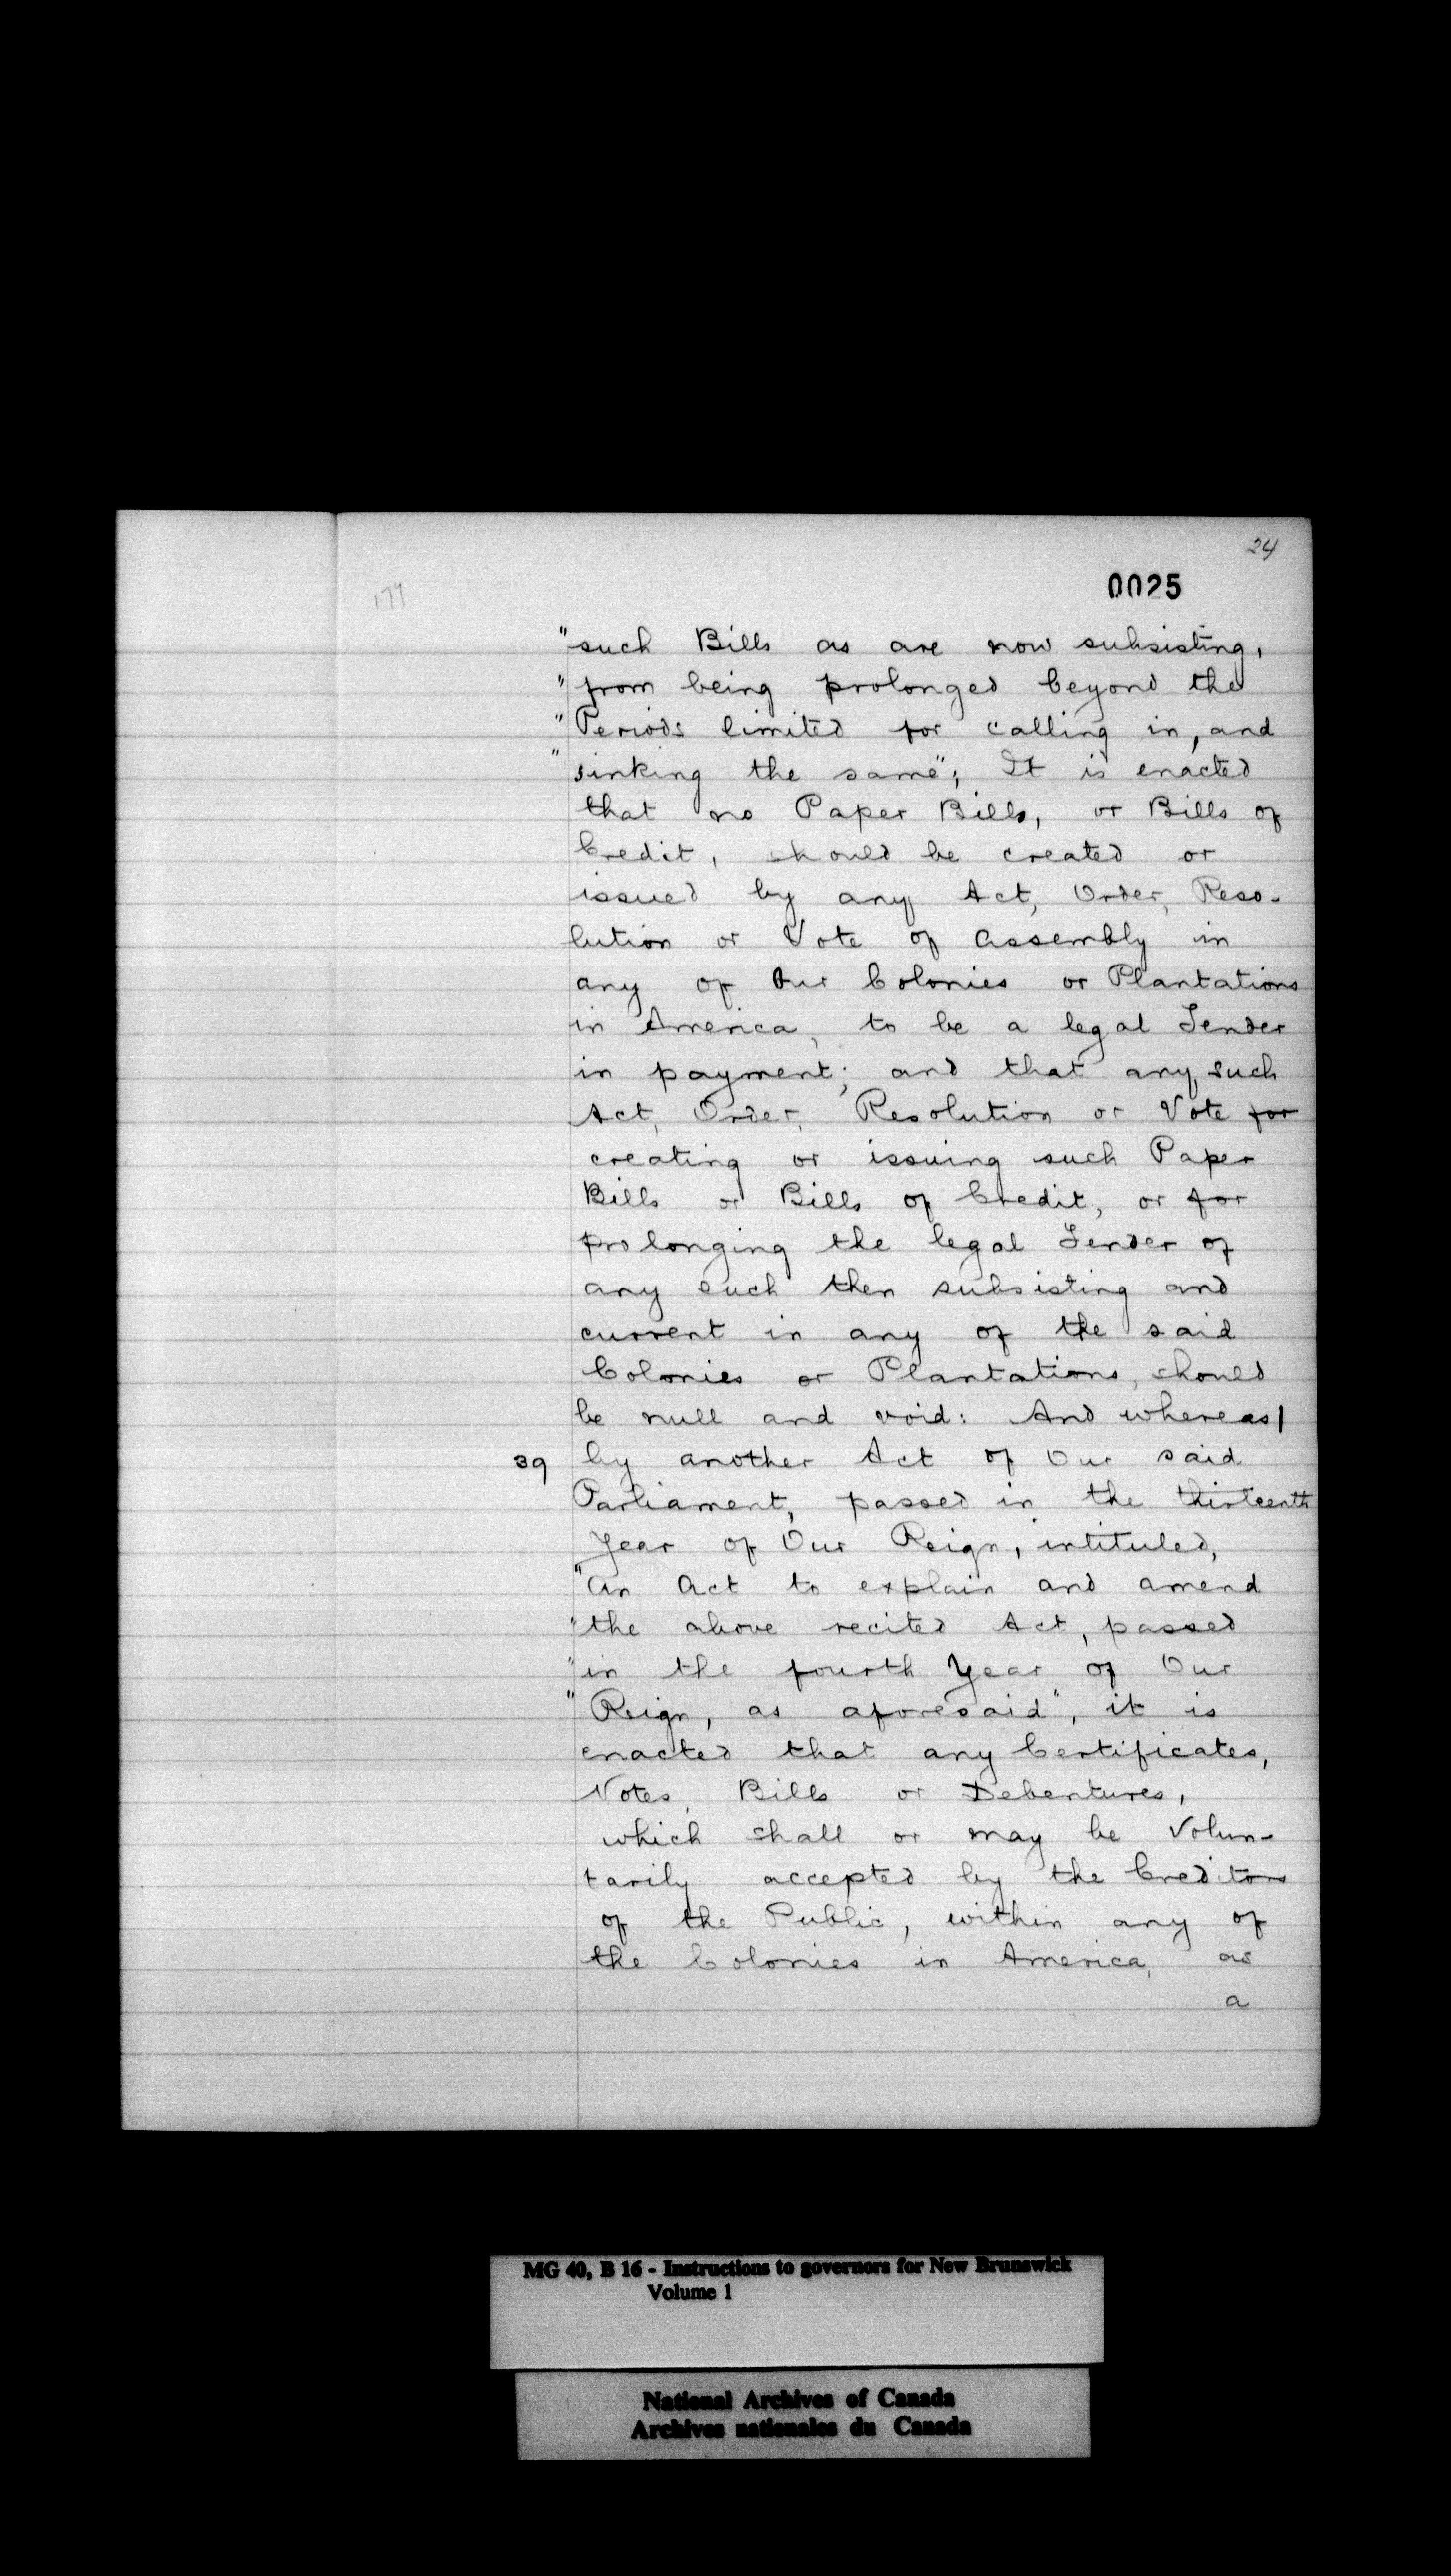 24
0025
179
"such Bills as are now subsisting,
"from being prolonged beyond the
"Periods limited for calling in, and
"sinking the same"; It is enacted
that no Paper Bills, or Bills of
Credit, should be created or
issued by any Act, Order, Reso-
lution or Vote of Assembly in
any of Our Colonies or Plantations
in America, to be a legal Tender
in payment; and that any such
Act, Order, Resolution or Vote for
creating or issuing such Paper
Bills or Bills of Credit, or for
prolonging the legal Tender of
any such then subsisting and
current in any of the said
Colonies or Plantations, should
be null and void: And whereas/
39 by another Act of Our said
Parliament, passed in the thirteenth
Year of Our Reign, intituled,
"An Act to explain and amend
"the above recited Act, passed
"in the fourth Year of Our
"Reign, as aforesaid", it is
enacted that any Certificates,
Notes, Bills or Debentures,
which shall or may be Volun-
tarily accepted by the Creditors
of the Public, within any of
the Colonies in America, as
a
MG 40, B 16 - Instructions to governors for New Brunswick
Volume 1
National Archives of Canada
Archives nationales du Canada